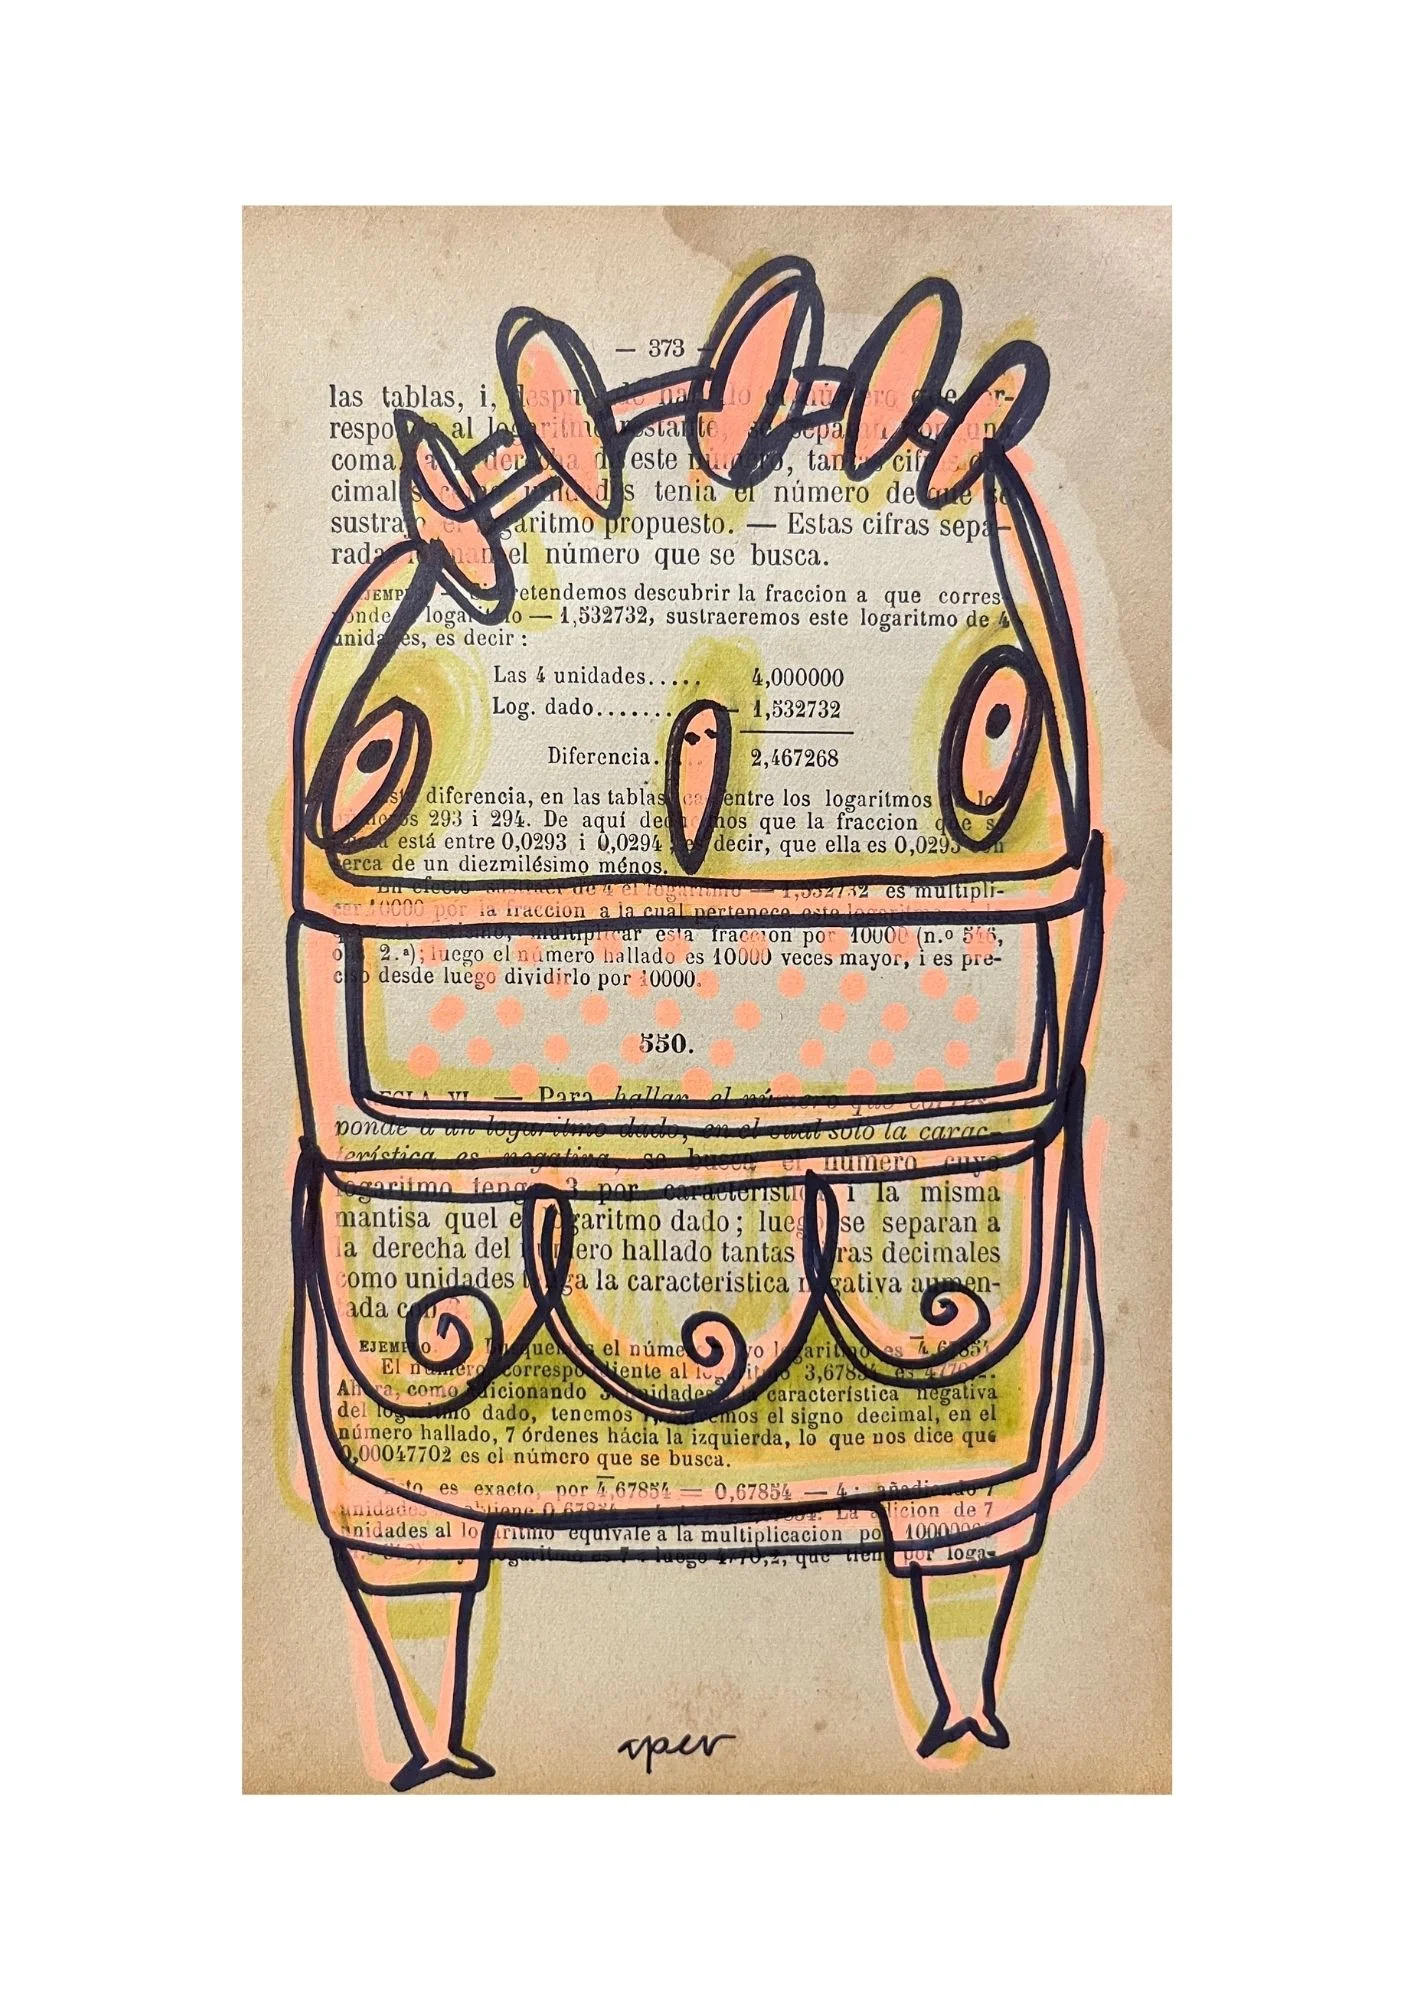 — 373 —
las tablas, i, despues de hallado el número que cor-
responde al logaritmo restante, se separan con una
coma, a la derecha de este número, tantas cifras de-
cimales como unidades tenia el número de que se
sustrajo el logaritmo propuesto. — Estas cifras sepa-
radas forman el número que se busca.
EJEMPLO — Si pretendemos descubrir la fraccion a que corres-
ponde el logaritmo — 1,532732, sustraeremos este logaritmo de 4
unidades, es decir :
Las 4 unidades..... 4,000000
Log. dado....... 1,532732
Diferencia. 2,467268
Esta diferencia, en las tablas cae entre los logaritmos de los
números 293 i 294. De aquí deducimos que la fraccion que se
está entre 0,0293 i 0,0294 ; es decir, que ella es 0,0293 con
cerca de un diezmilésimo ménos.
En efecto sustraer de 4 el logaritmo — 1,532732 es multipli-
car 10000 por la fraccion a la cual pertenece este logaritmo
multiplicar esta fraccion por 10000 (n.º 546,
2.ª); luego el número hallado es 10000 veces mayor, i es pre-
ciso desde luego dividirlo por 10000.
550.
REGLA VI. — Para hallar el número que corres-
ponde a un logaritmo dado, en el cual solo la carac-
terística es negativa, se busca el número cuyo
logaritmo tenga 3 por característica i la misma
mantisa quel el logaritmo dado ; luego se separan a
la derecha del número hallado tantas cifras decimales
como unidades tenga la característica negativa aumen-
tada con
EJEMPLO. — Busquemos el número cuyo logaritmo es 4̅,67854
El número correspondiente al logaritmo 3,67854 es 4770,2.
Ahora, como adicionando unidades la característica negativa
del logaritmo dado, tenemos el signo decimal, en el
número hallado, 7 órdenes hácia la izquierda, lo que nos dice que
0,00047702 es el número que se busca.
Esto es exacto, por 4̅,67854 = 0,67854 — 4 : añadiendo 7
unidades se obtiene 0,67854 La adicion de 7
unidades al logaritmo equivale a la multiplicacion por 10000000
logaritmo es 7 : luego 4770,2, que tiene por loga-